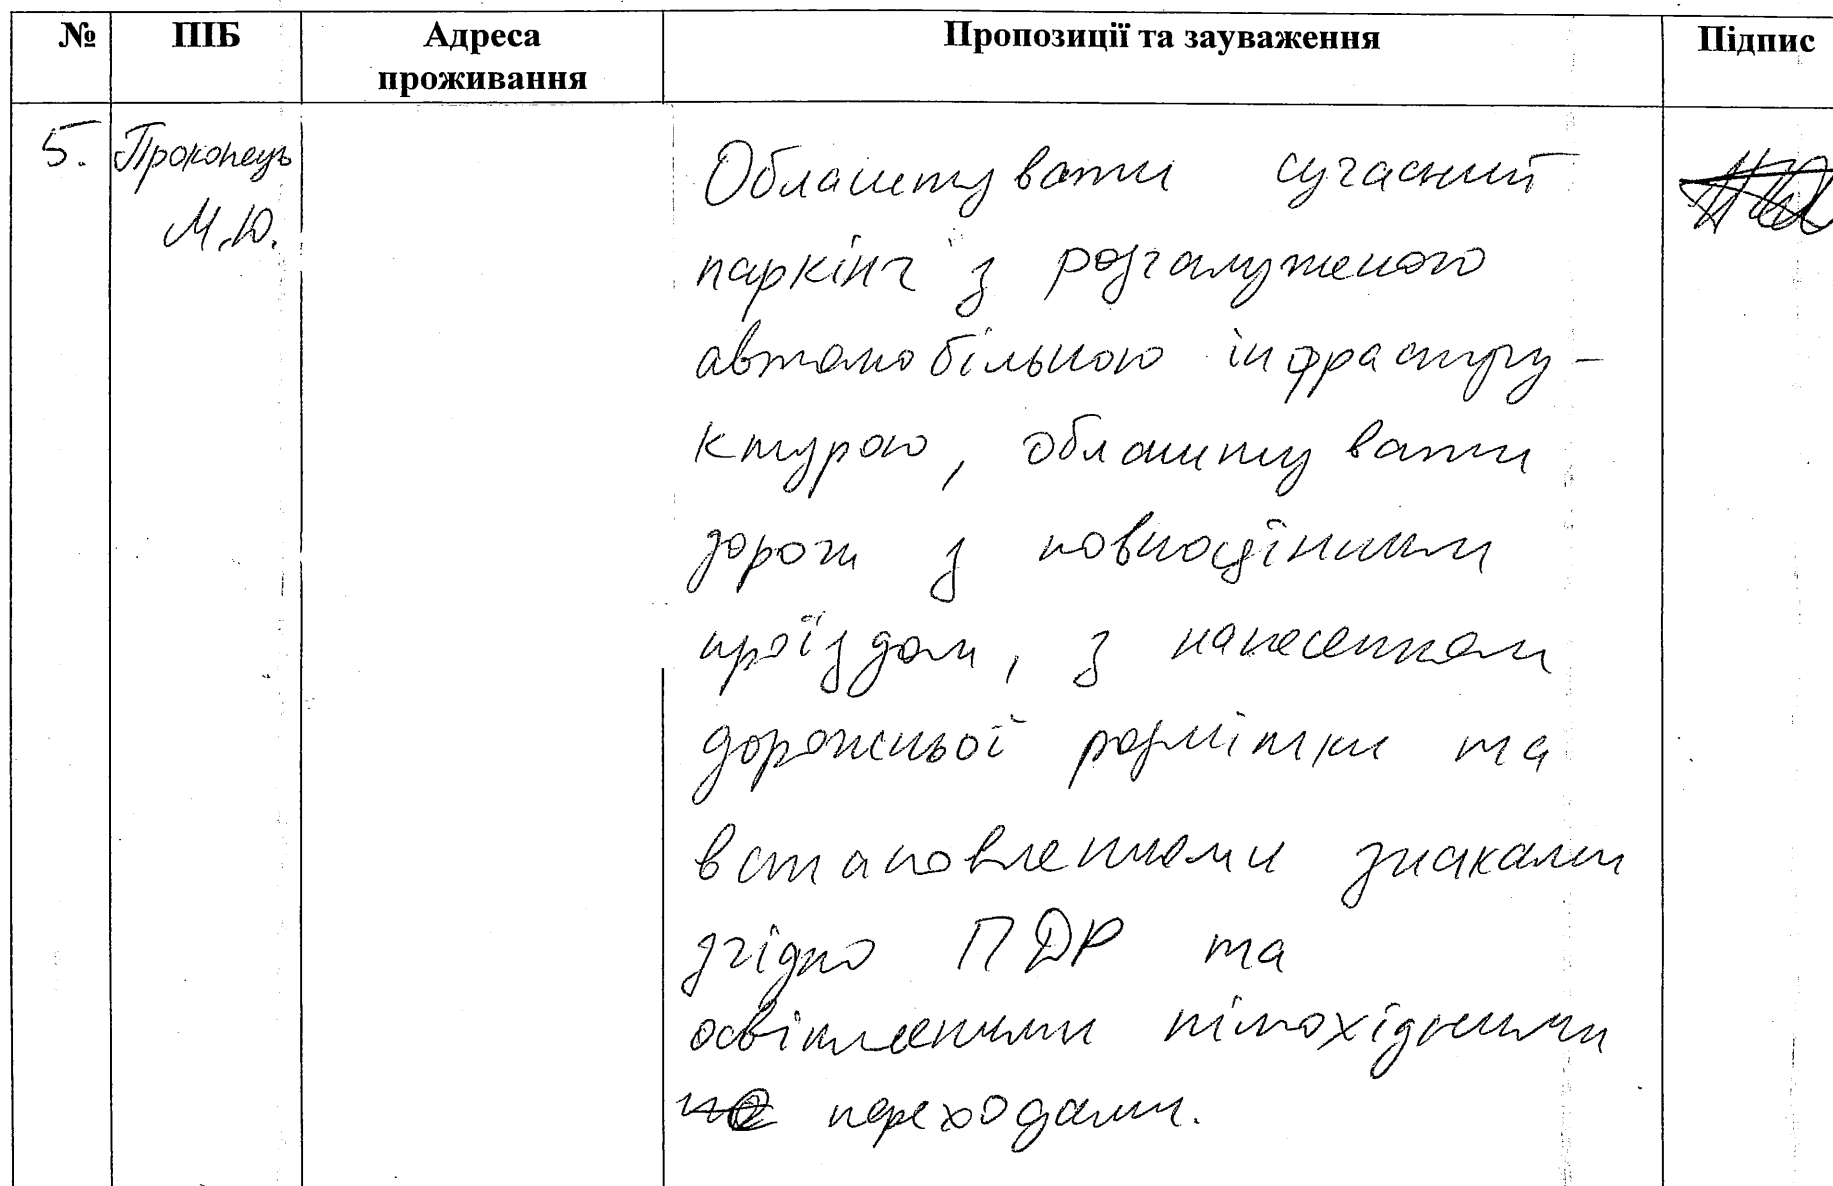 № ПІБ Адреса проживання Пропозиції та зауваження Підпис
5. Прокопець
М.Ю.
Облаштувати сучасний
паркінг з розгалуженою
автомобільною інфрастру-
ктурою, облаштувати
дороги з повноцінним
проїздом, з нанесенням
дорожньої розмітки та
встановленнями знаками
згідно ПДР та
освітленими пішохідними
переходами.